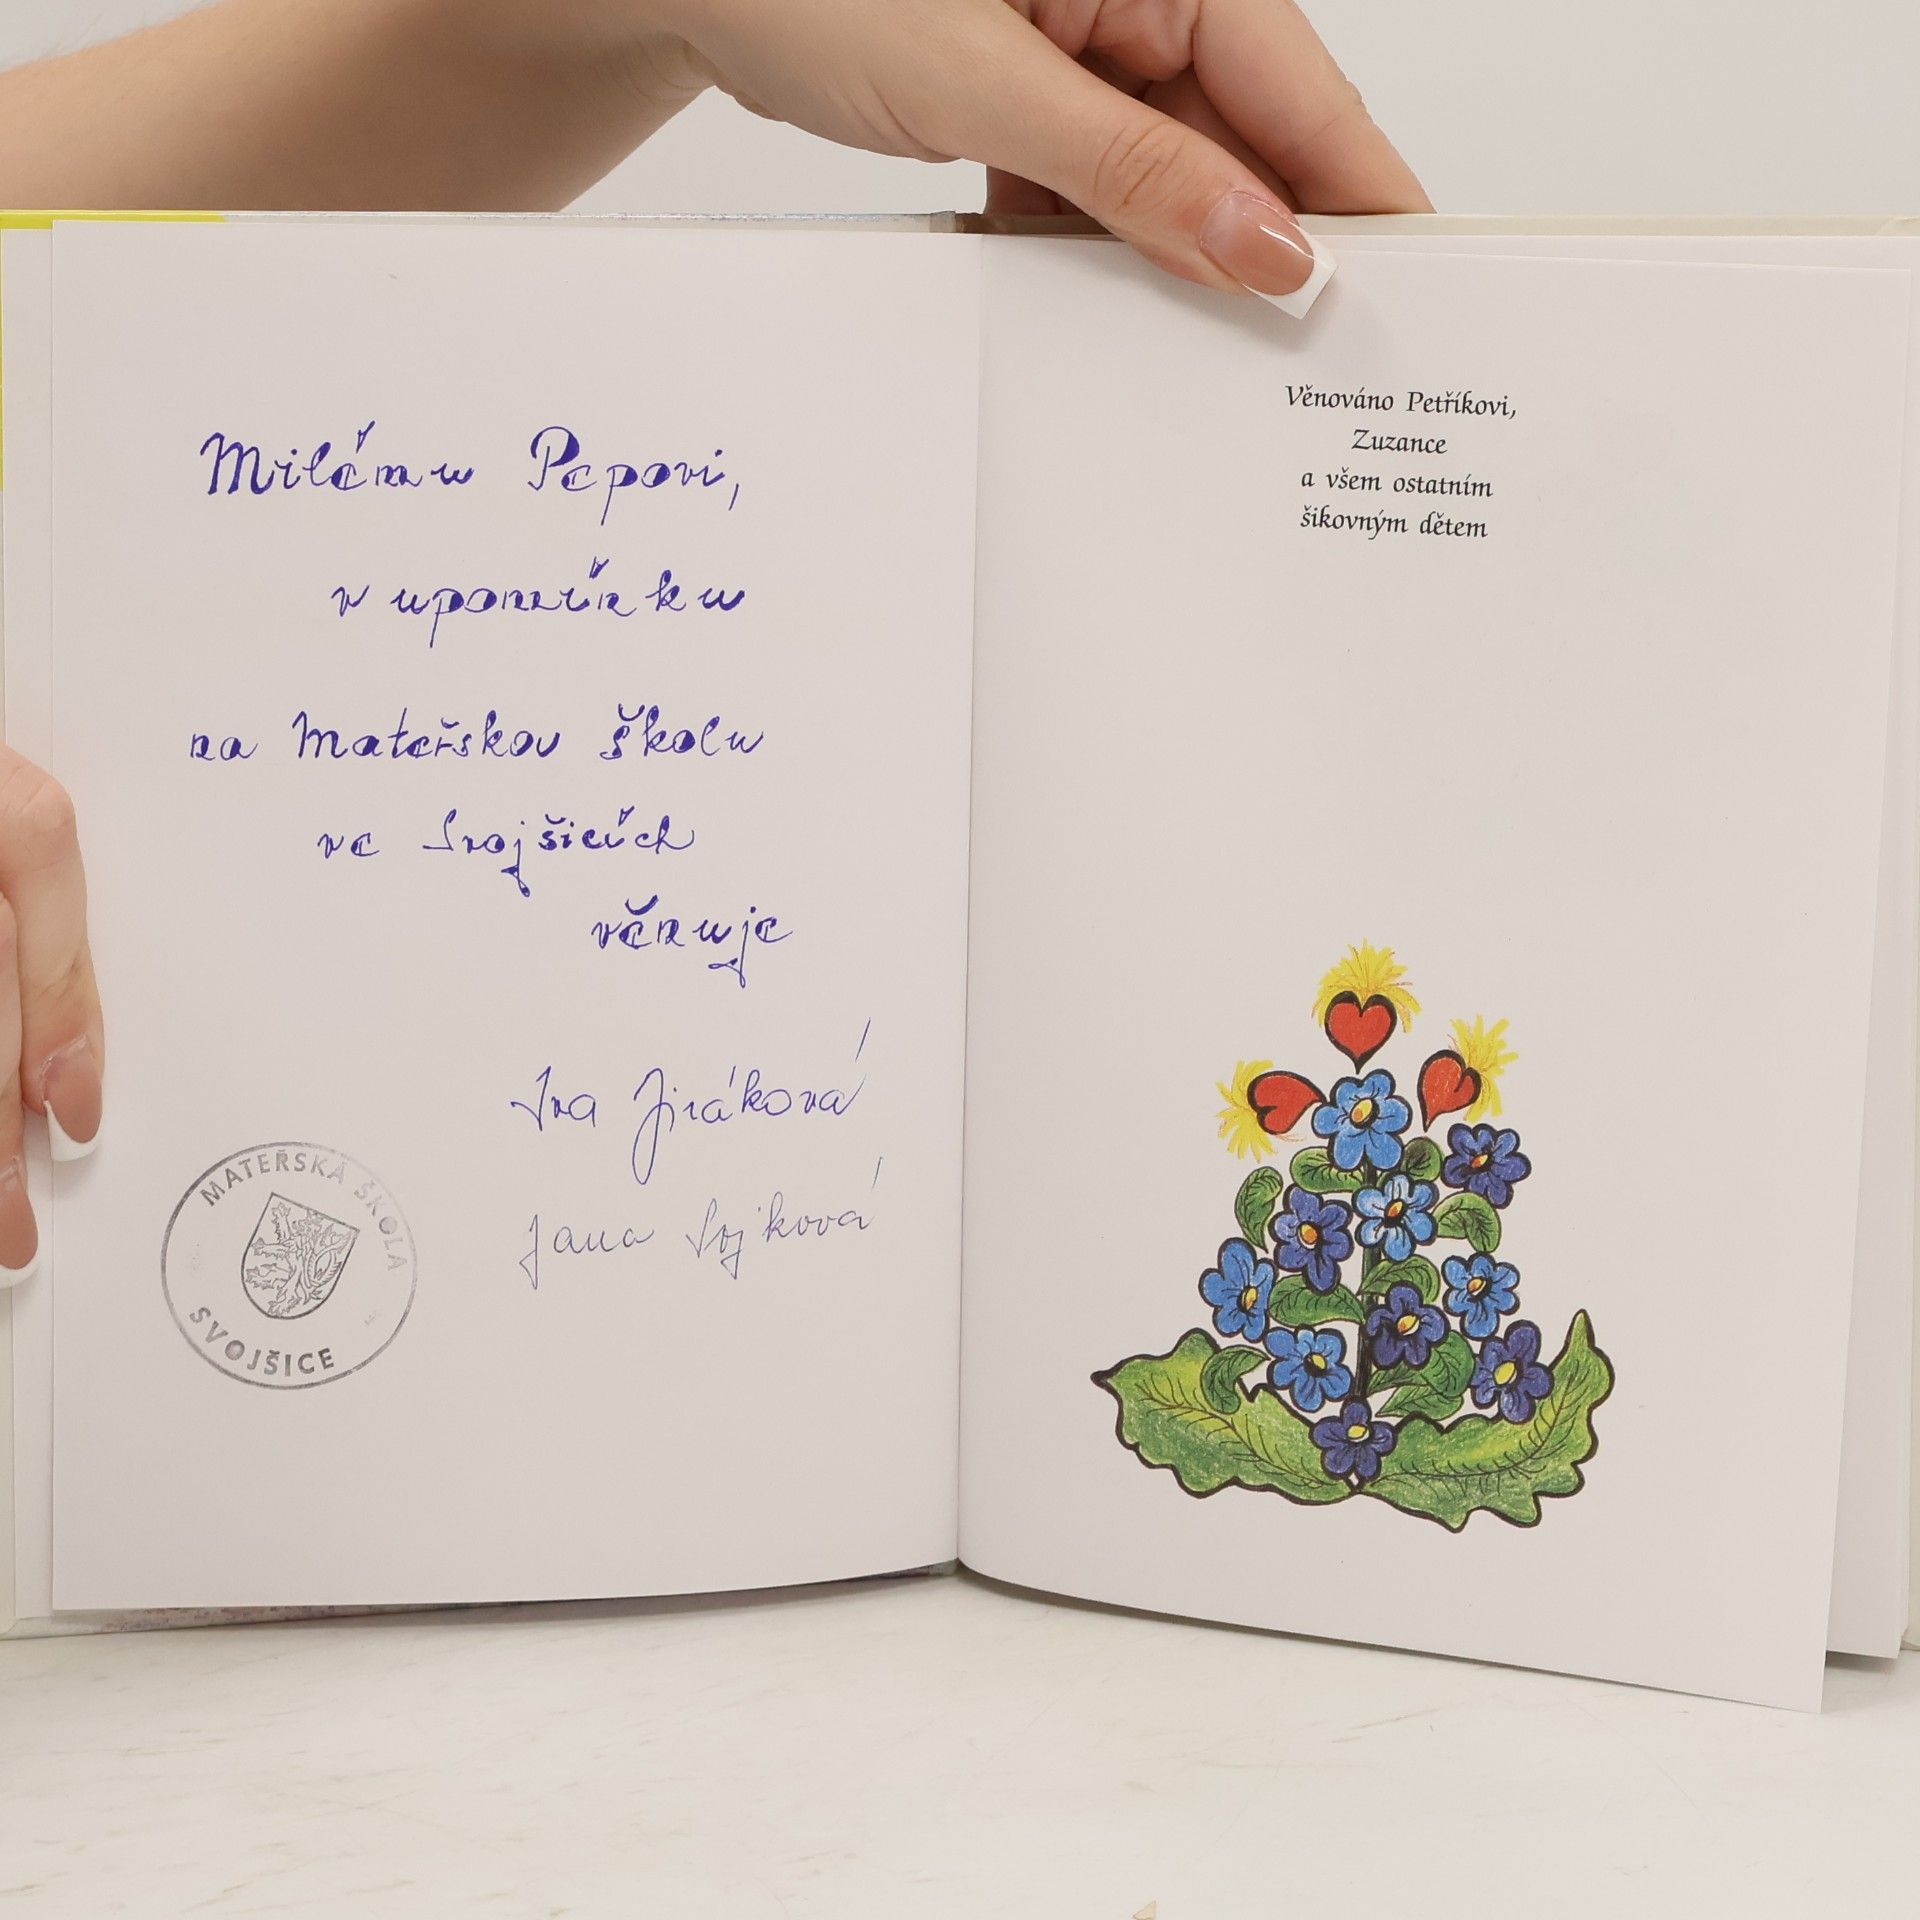 Milému Pepovi,
v upomínku
na Mateřskou školu
ve Svojšicích
věnuje
Iva Jiráková
Jana Sojková
MATEŘSKÁ ŠKOLA
SVOJŠICE
Věnováno Petříkovi,
Zuzance
a všem ostatním
šikovným dětem